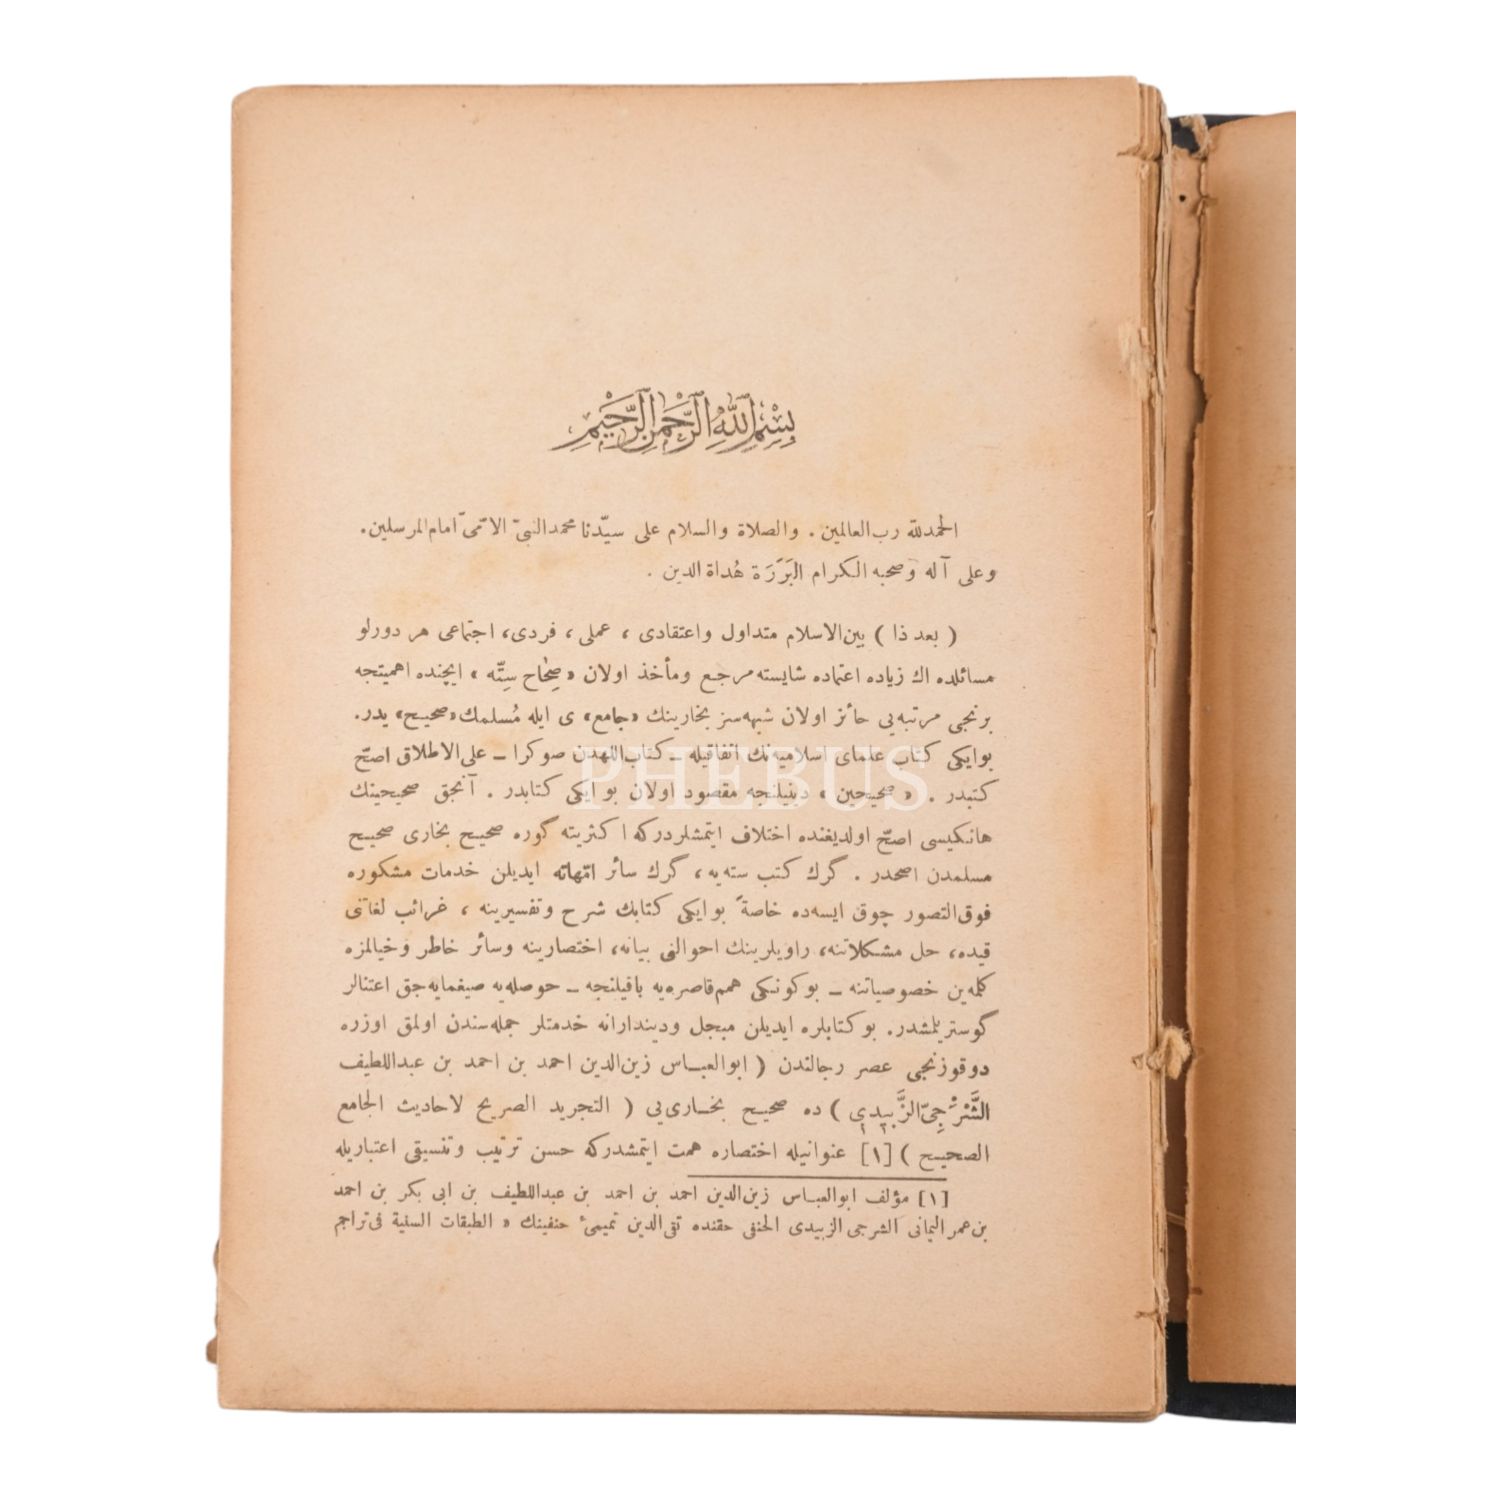 بِسْمِ اللهِ الرَّحْمنِ الرَّحِيمِ
الحمدلله رب العالمين . والصلاة والسلام على سيّدنا محمد النبىّ الأمّىّ امام المرسلين .
وعلى آله وصحبه الكرام البَرَرَة هُداة الدين .
( بعد ذا ) بين‌الاسلام متداول واعتقادى ، عملى ، فردى ، اجتماعى هر دورلو
مسائلده اك زياده اعتماده شايسته مرجع ومأخذ اولان «صِحاح سِتّه » ايچنده اهميتجه
برنجى مرتبه‌يى حائز اولان شبهه‌سز بخارينك «جامع» ى ايله مُسلمك «صحيح» يدر.
بو ايكى كتاب علماى اسلاميه‌نك اتفاقيله ــ كتاب‌اللهدن صوكرا ــ على الاطلاق اصحّ
كتبدر . « صحيحين » دينيلنجه مقصود اولان بو ايكى كتابدر . آنجق صحيحينك
هانكيسى اصحّ اولديغنده اختلاف ايتمشلردركه اكثريته كوره صحيح بخارى صحيح
مسلمدن اصحدر . گرك كتب سته‌يه ، گرك سائر امّهاته ايديلن خدمات مشكوره
فوق‌التصور چوق ايسه‌ده خاصةً بو ايكى كتابك شرح وتفسيرينه ، غرائب لغاتنى
قيده ، حل مشكلاتنه، راويلرينك احوالنى بيانه، اختصارينه وسائر خاطر وخيالمزه
كلمه‌ين خصوصياتنه ــ بوكونكى همم قاصره‌يه باقيلنجه ــ حوصله‌يه صيغمايه‌جق اعتنالر
گوستريلمشدر. بو كتابلره ايديلن مبجل وديندارانه خدمتلر جمله‌سندن اولمق اوزره
دوقوزنجى عصر رجالندن ( ابوالعبــاس زين‌الدين احمد بن احمد بن عبداللطيف
الشَّرْجِىّ الزَّبِيدى ) ده صحيح بخــارى‌يى ( التجريد الصريح لاحاديث الجامع
الصحيح ) [١] عنوانيله اختصاره همت ايتمشدركه حسن ترتيب وتنسيقى اعتباريله
[١] مؤلف ابوالعبــاس زين‌الدين احمد بن احمد بن عبداللطيف بن ابى بكر بن احمد
بن عمر اليمانى الشرجى الزبيدى الحنفى حقنده تقى الدين تميمئ حنفينك « الطبقات السنية فى تراجم
PHEBUS